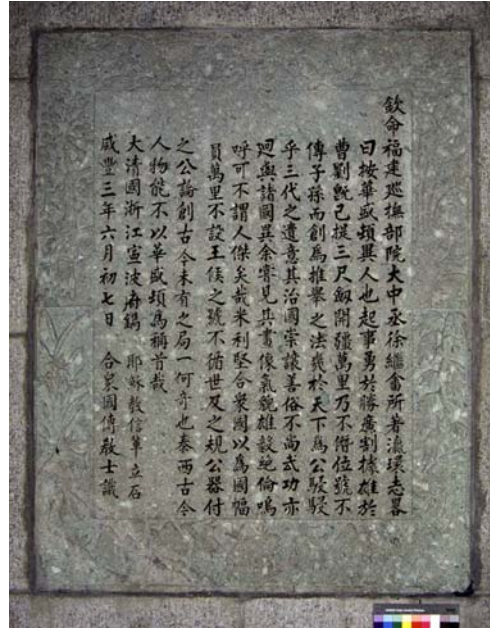 欽命福建廵撫部院大中丞徐繼畬所著瀛環志畧
曰按華盛頓異人也起事勇於勝廣割據雄於
曹劉旣已提三尺劎開疆萬里乃不僭位號不
傳子孫而創爲推舉之法幾於天下爲公駸駸
乎三代之遺意其治國崇讓善俗不尚武功亦
迥與諸國異余嘗見其畫像氣貌雄毅絶倫嗚
呼可不謂人傑矣哉米利堅合衆國以爲國幅
員萬里不設王侯之號不循世及之規公器付
之公論創古今未有之局一何奇也泰西古今
人物能不以華盛頓爲稱首哉
大清國浙江寧波府鐫 耶穌教信輩立石
咸豐三年六月初七日 合衆國傳教士識